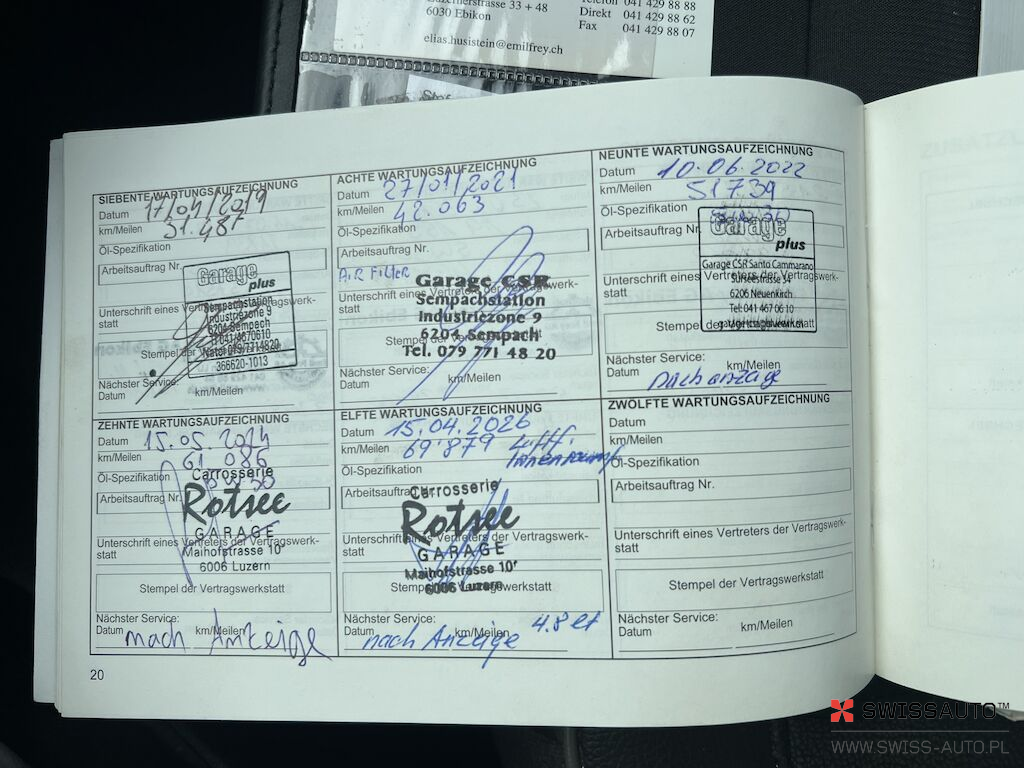 Luzernerstrasse 33 + 48
6030 Ebikon
Telefon 041 429 88 88
Direkt 041 429 88 62
Fax 041 429 88 07
elias.husistein@emilfrey.ch
SIEBENTE WARTUNGSAUFZEICHNUNG
Datum 17/04/2019
km/Meilen 31.487
Öl-Spezifikation
Arbeitsauftrag Nr.
Garage
plus
Unterschrift eines Vertreters der Vertragswerk-
statt
Sempachstation
Industriezone 9
6204 Sempach
Stempel der
366620-1013
Nächster Service:
Datum km/Meilen
ACHTE WARTUNGSAUFZEICHNUNG
Datum 27/01/2021
km/Meilen 42.063
Öl-Spezifikation
Arbeitsauftrag Nr.
AIR FILTER
Unterschrift eines Vertreters der Vertragswerk-
statt
Garage CSR
Sempachstation
Industriezone 9
6204 Sempach
Tel. 079 771 48 20
Nächster Service:
Datum km/Meilen
NEUNTE WARTUNGSAUFZEICHNUNG
Datum 10.06.2022
km/Meilen 51739
Öl-Spezifikation
Arbeitsauftrag Nr.
Garage
plus
Garage CSR Santo Cammarano
Surseestrasse 34
6206 Neuenkirch
Tel: 041 467 06 10
Unterschrift eines Vertreters der Vertragswerk-
statt
Stempel der Vertragswerkstatt
Nächster Service:
Datum km/Meilen
ZEHNTE WARTUNGSAUFZEICHNUNG
Datum 15.05.2024
km/Meilen 61 086
Öl-Spezifikation
Arbeitsauftrag Nr.
Carrosserie
Rotsee
GARAGE
Maihofstrasse 10
6006 Luzern
Unterschrift eines Vertreters der Vertragswerk-
statt
Stempel der Vertragswerkstatt
Nächster Service:
Datum km/Meilen
nach Anzeige
ELFTE WARTUNGSAUFZEICHNUNG
Datum 15.04.2026
km/Meilen 69'879
Öl-Spezifikation
Arbeitsauftrag Nr.
Carrosserie
Rotsee
GARAGE
Maihofstrasse 10
6006 Luzern
Unterschrift eines Vertreters der Vertragswerk-
statt
Stempel der Vertragswerkstatt
Nächster Service: 4.8 lt
Datum km/Meilen
nach Anzeige
ZWÖLFTE WARTUNGSAUFZEICHNUNG
Datum
km/Meilen
Öl-Spezifikation
Arbeitsauftrag Nr.
Unterschrift eines Vertreters der Vertragswerk-
statt
Stempel der Vertragswerkstatt
Nächster Service:
Datum km/Meilen
20
SWISSAUTO™
WWW.SWISS-AUTO.PL